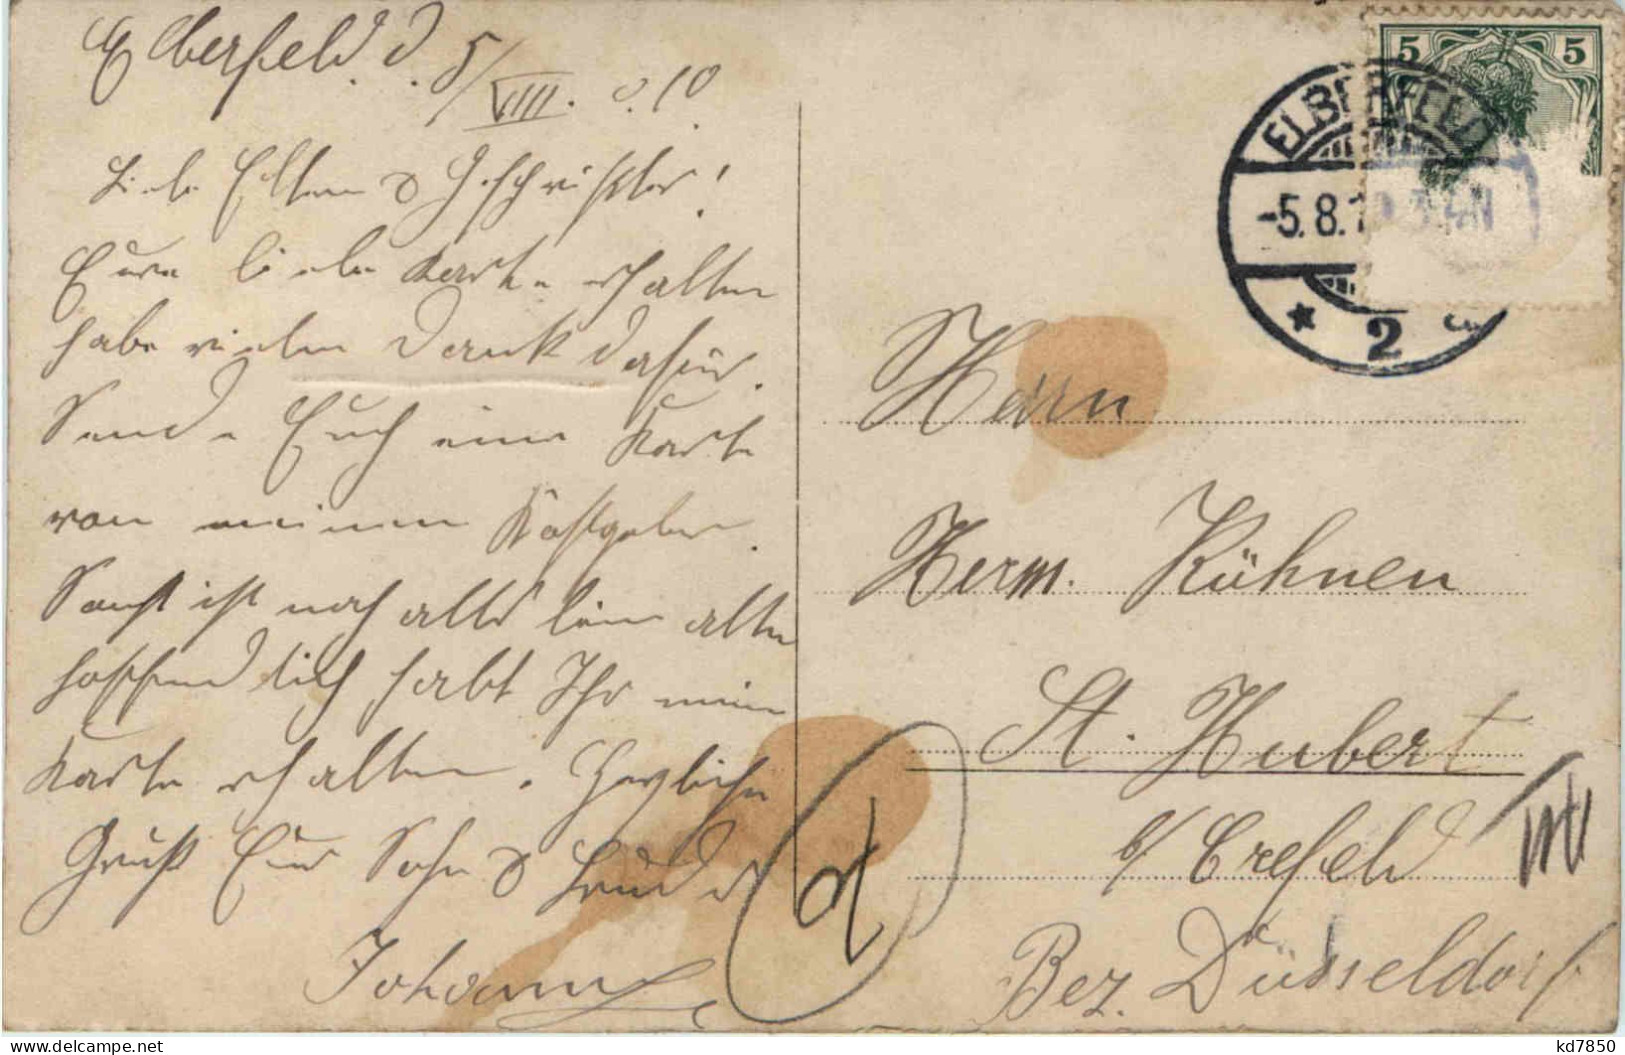 Elberfeld. d. 5/VIII. 0.10.
Liebe Eltern & Geschwister!
Eure liebe Karte erhalten
habe vielen Dank dafür.
Sende Euch eine Karte
von meinem Kostgeber.
Sonst ist noch alles beim alten
hoffendlich habt Ihr meine
Karte erhalten. Herzliche
Gruß Euer Sohn & Bruder
Johann
5 5
ELBERFELD
-5.8.10 3-4N
* 2
Herrn
Herm. Kühnen
St. Hubert
b/ Crefeld
Bez. Düsseldorf
kd7850